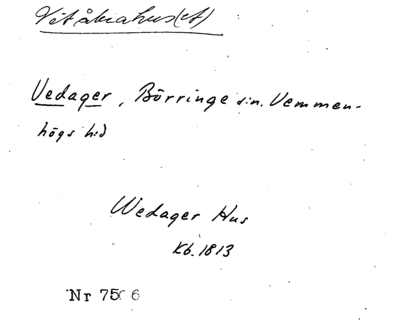 Vitåkrahus(et)
Vedager, Börringe sn. Vemmen-
högs hd
Wedager Hus
Kb. 1813
Nr 75 6